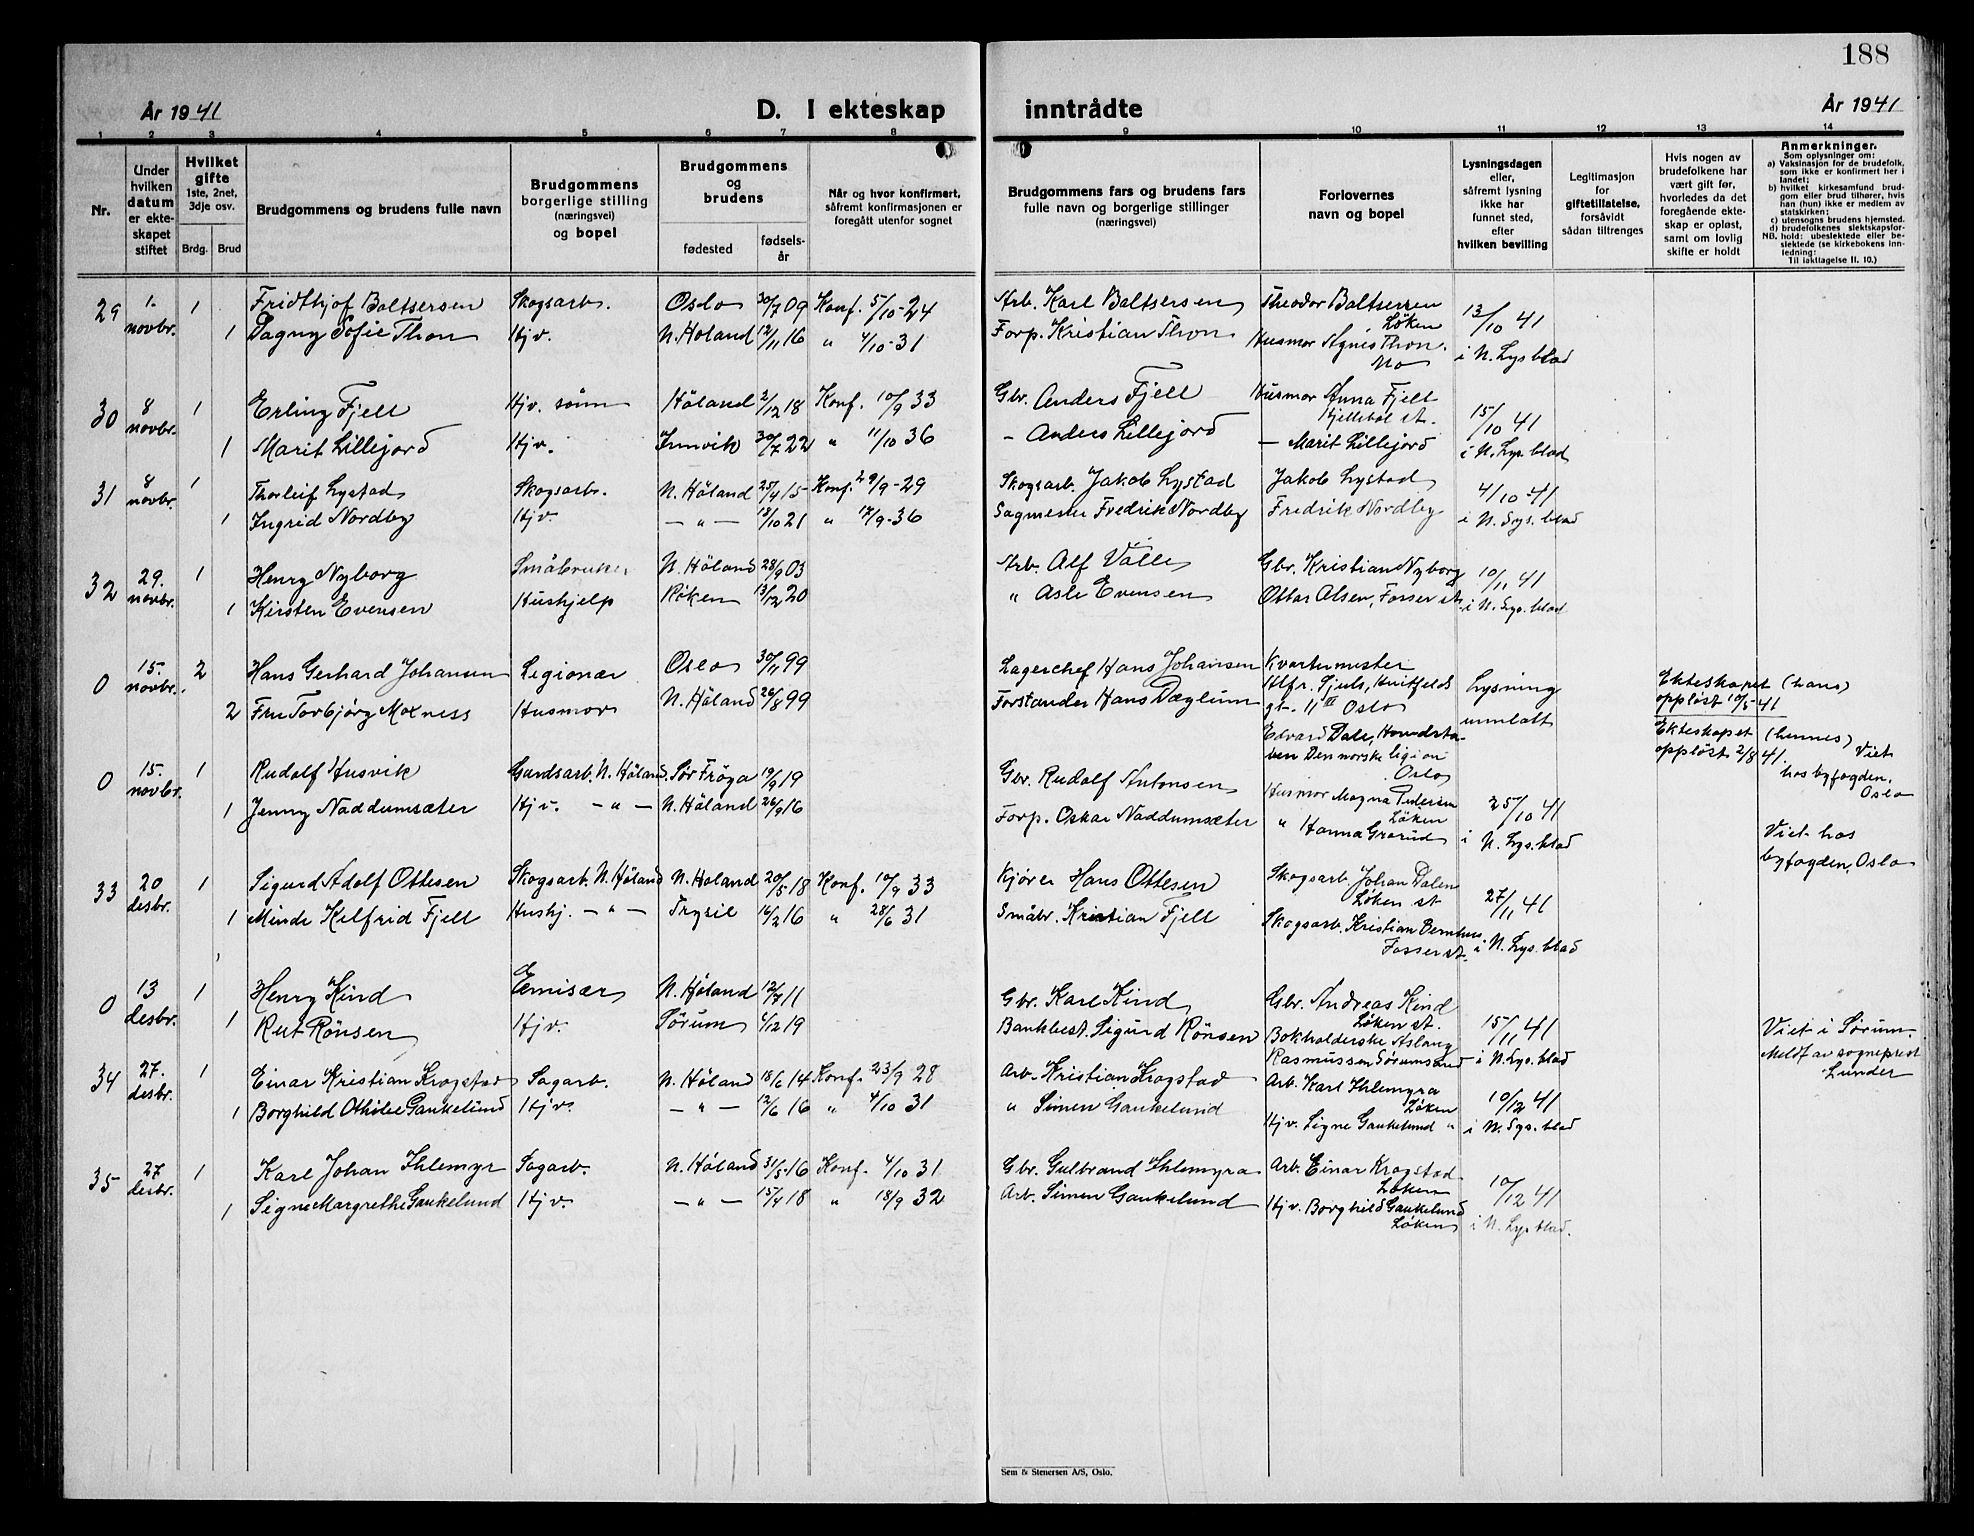 188
År 1941
D. I ekteskap
inntrådte
År 1941
1 2 3 4 5 6 7 8 9 10 11 12 13 14
Nr.
Under
hvilken
datum
er ekte-
skapet
stiftet
Hvilket
gifte
1ste, 2net,
3dje osv.
Brdg. Brud
Brudgommens og brudens fulle navn
Brudgommens
borgerlige stilling
(næringsvei)
og bopel
Brudgommens
og
brudens
fødested
fødsels-
år
Når og hvor konfirmert,
såfremt konfirmasjonen er
foregått utenfor sognet
Brudgommens fars og brudens fars
fulle navn og borgerlige stillinger
(næringsvei)
Forlovernes
navn og bopel
Lysningsdagen
eller,
såfremt lysning
ikke har
funnet sted,
efter
hvilken bevilling
Legitimasjon
for
giftetillatelse,
forsåvidt
sådan tiltrenges
Hvis nogen av
brudefolkene har
vært gift før,
hvorledes da det
foregående ekte-
skap er opløst,
samt om lovlig
skifte er holdt
Anmerkninger.
Som oplysninger om:
a) Vaksinasjon for de brudefolk,
som ikke er konfirmert her i
landet;
b) hvilket kirkesamfund brud-
gom eller brud tilhører, hvis
han (hun) ikke er medlem av
statskirken;
c) utensogns brudens hjemsted.
d) brudefolkenes slektskapsfor-
NB. hold: ubeslektede eller be-
slektede (se kirkebokens inn-
ledning:
Til iakttagelse II. 10.)
29 1. novbr. 1 Fridthjof Baltsersen Skogsarb. Oslo 30/7 09 Konf. 5/10-24 Arb. Karl Baltsersen Theodor Baltsersen Løken 13/10 41
1 Dagny Sofie Thon Hjv. N. Høland 12/11 16 " 4/10-31 Forp. Kristian Thon Husmor Agnes Thon. No i N. Lys blad
30 8 novbr. 1 Erling Fjell Hjv. sønn Höland 2/12 18 Konf. 10/9 33 Gbr. Anders Fjell Husmor Anna Fjell st. 15/10 41
1 Marit Lillejord Hjv. Innvik 30/7 22 " 11/10 36 - Anders Lillejord - Marit Lillejord i N. Lys. blad
31 8 novbr. 1 Thorleif Lystad Skogsarb. N. Höland 25/4 15 Konf. 29/9-29 Skogsarb. Jakob Lystad Jakob Lystad 4/10 41
1 Ingrid Nordby Hjv. - " - 18/10 21 " 17/9-36 Sagmester Fredrik Nordby Fredrik Nordby i N. Lys. blad
32 29. novbr. 1 Henry Nyborg Småbruker N. Höland 28/9 03 Arb. Alf Valle Gbr. Kristian Nyborg 10/11 41
1 Kirsten Evensen Hushjelp Röken 13/12 20 " Asle Evensen Ottar Olsen, Fosser st. i N. Lys. blad
0 15. novbr. 2 Hans Gerhard Johansen Legionær Oslo 30/11 99 Lagerchef Hans Johansen Kvartermester Alfr. Sjuls, Huitfelds gt. 11 III Oslo Lysning unnlatt Ekteskapet (hans) oppløst 10/5-41
2 Fru Torbjørg Moxness Husmor N. Höland 26/8 99 Forstander Hans Dæhlum Edvard Dale, Hovedsta- ben Den norske legion Oslo Ekteskapet (hennes) oppløst 2/8 41. Viet hos byfogden, Oslo
0 15. novbr. 1 Rudolf Husvik Gardsarb. N. Höland Sör Fröya 19/9 19 Gbr. Rudolf Antonsen Husmor Magna Pedersen Løken 25/10 41
1 Jenny Naddumsæter Hjv. - " - N. Höland 26/9 16 Forp. Oskar Naddumsæter " Hanna Grorud i N. Lys. blad Viet hos byfogden, Oslo
33 20 desbr. 1 Sigurd Adolf Ottesen Skogsarb. N. Höland N. Höland 20/5 18 Konf. 10/9 33 Kjører Hans Ottesen Skogsarb Johan Dalen Løken st 27/11 41
1 Minda Helfrid Fjell Hushj. - " - Trysil 16/2 16 " 28/6 31 Småbr. Kristian Fjell Skogsarb. Kristian Fosser st. i N. Lys. blad
0 13 desbr. 1 Henry Kind Emisær N. Höland 12/7 11 Gbr. Karl Kind Gbr. Andreas Kind Løken st. 15/11 41
1 Rut Rönsen Hjv. Sørum 4/12 19 Bankbest. Sigurd Rönsen Bokholderske Aslaug Rasmussen Sørumsand i N. Lys. blad Viet i Sørum. Meldt av sogneprest Lunder
34 27. desbr. 1 Einar Kristian Krogstad Sagarb. N. Höland 18/6 14 Konf. 23/9 28 Arb. Kristian Krogstad Arb. Karl Ihlemyra Løken 10/12 41
1 Borghild Othilie Gaukelund Hjv. - " - 12/6 16 " 4/10 31 " Simen Gaukelund Hjv. Signe Gaukelund " i N. Lys. blad
35 27 desbr. 1 Karl Johan Ihlemyr Sagarb. N. Höland 31/5-16 Konf. 4/10 31 Gbr. Gulbrand Ihlemyra Arb. Einar Krogstad Løken 10/12 41
1 Signe Margrethe Gaukelund Hjv. - " - 15/4 18 " 18/9 32 Arb. Simen Gaukelund Hjv. Borghild Gaukelund Løken i N. Lys blad.
Sem & Stenersen A/S, Oslo.